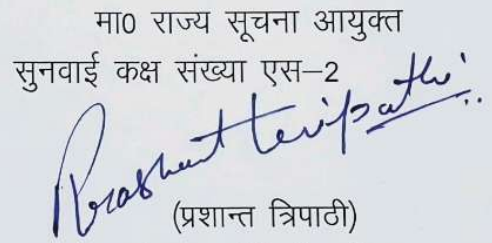 मा0 राज्य सूचना आयुक्त
सुनवाई कक्ष संख्या एस–2
Prashant Tripathi
(प्रशान्त त्रिपाठी)